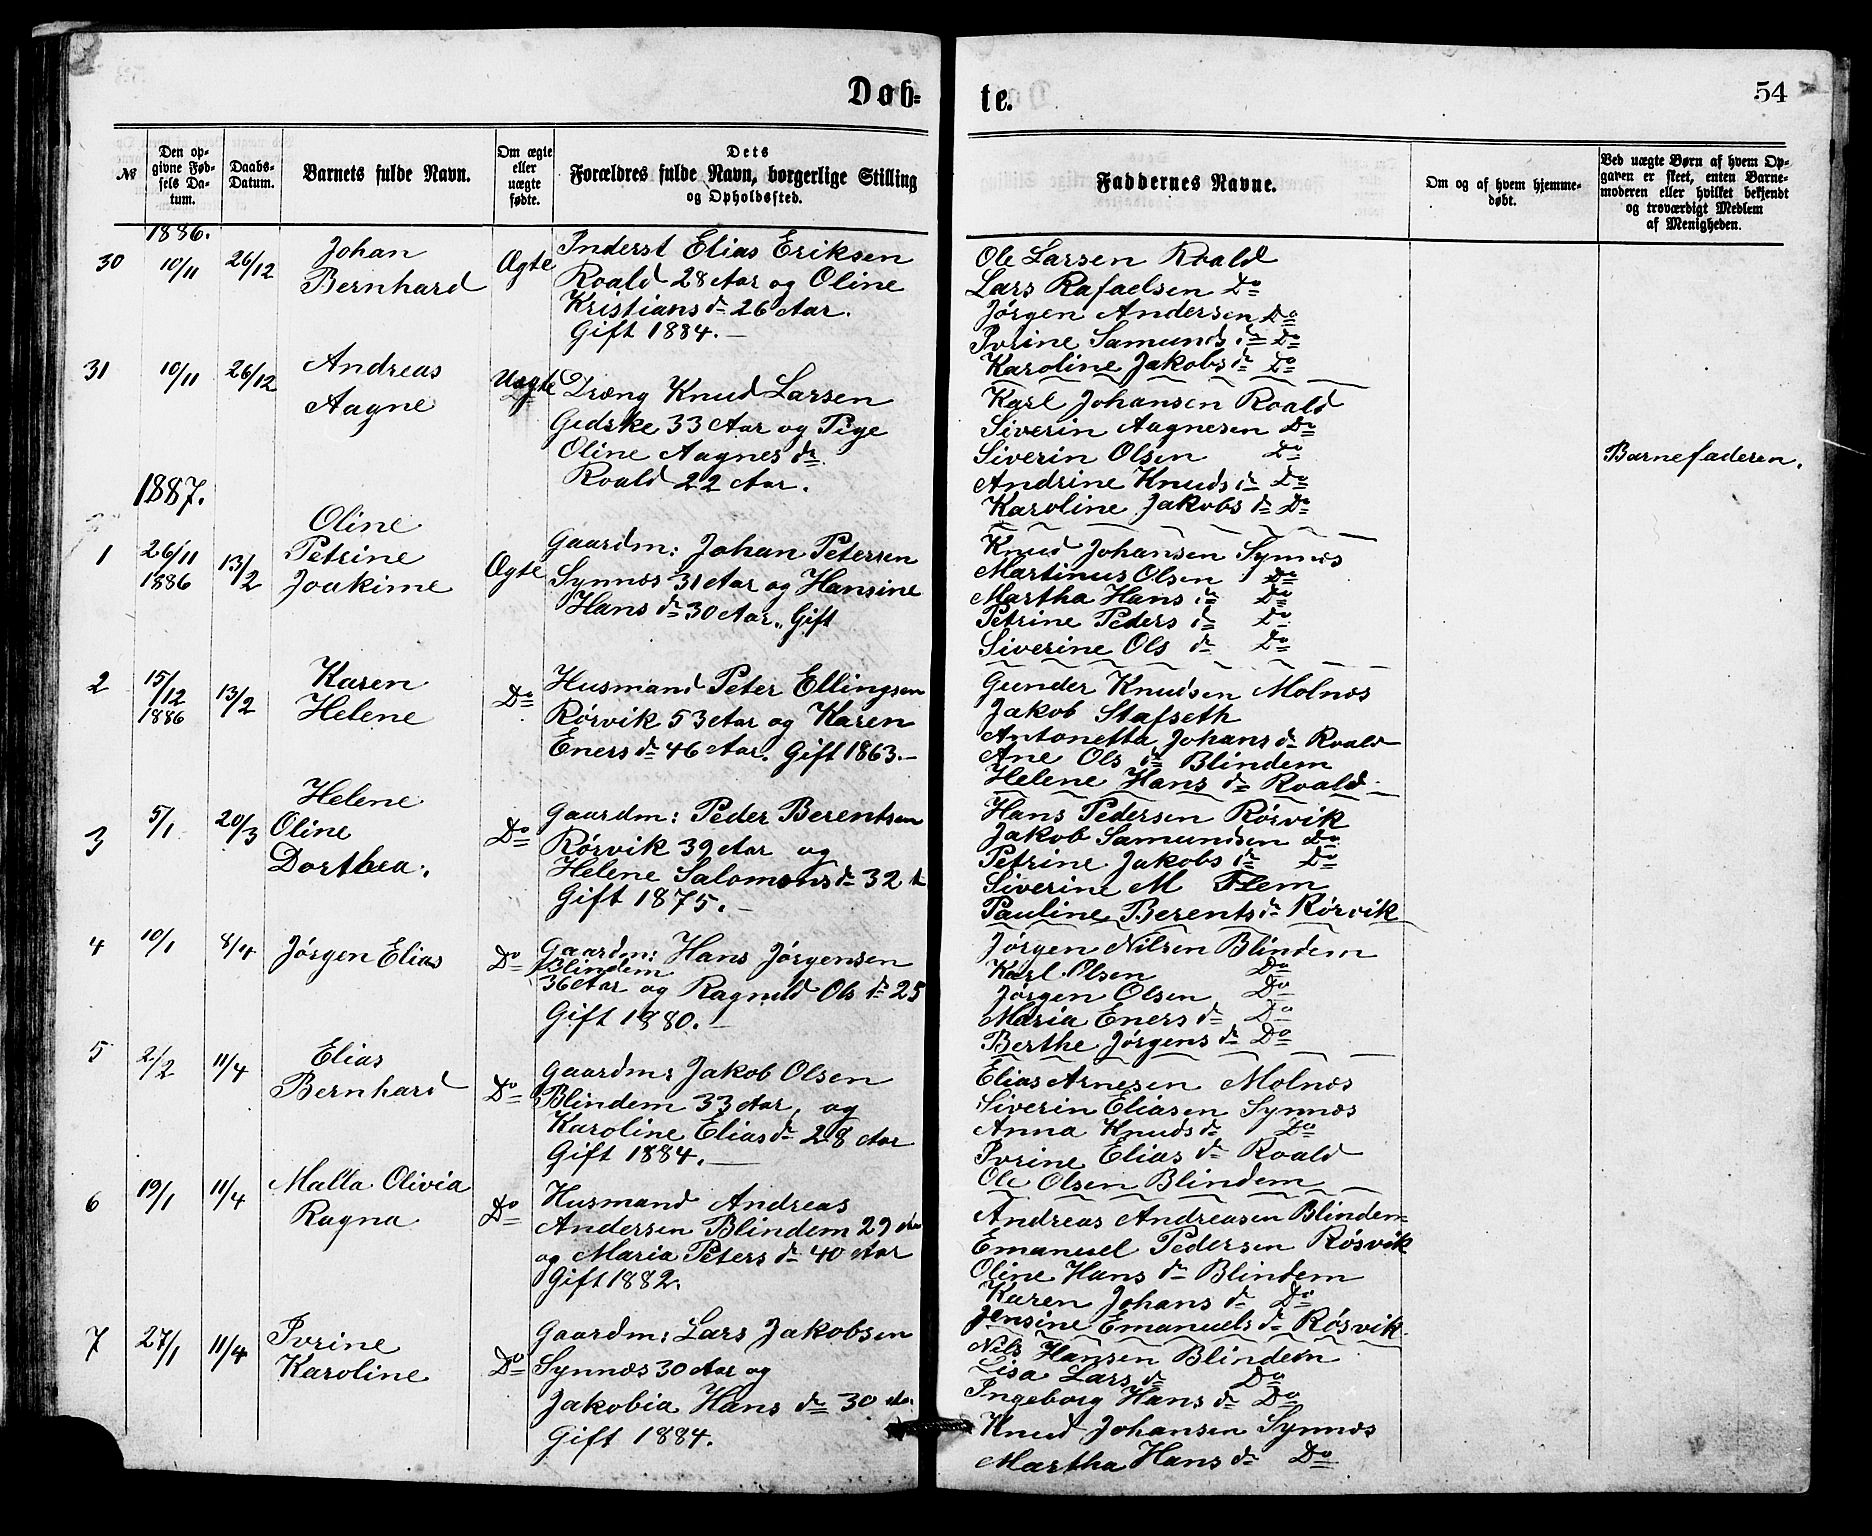 Døb-
te.
54
№
Den op-
givne Fød-
sels Da-
tum.
Daabs-
Datum.
Barnets fulde Navn.
Om ægte
eller
uægte
fødte.
Dets
Forældres fulde Navn, borgerlige Stilling
og Opholdssted.
Faddernes Navne.
Om og af hvem hjemme-
døbt.
Ved uægte Børn af hvem Op-
gaven er skeet, enten Barne-
moderen eller hvilket bekjendt
og troværdigt Medlem
af Menigheden.
1886.
30
10/11
26/12
Johan
Bernhard
Ægte
Inderst Elias Eriksen
Roald 28 Aar og Oline
Kristians dr 26 Aar.
Gift 1884.—
Ole Larsen Roald
Lars Rafaelsen Do
Jørgen Andersen Do
Ivrine Samunds dr Do
Karoline Jakobs dr Do
31
10/11
26/12
Andreas
Aagne
Uægte
Dræng Knud Larsen
Gedske 33 Aar og Pige
Oline Aagnes dr
Roald 22 Aar.
Karl Johansen Roald
Siverin Aagnesen Do
Siverin Olsen Do
Andrine Knuds dr Do
Karoline Jakobs dr Do
Barnefaderen.
1887.
1
26/11
1886
13/2
Oline
Petrine
Joakime
Ægte
Gaardm: Johan Petersen
Synnæs 31 Aar og Hansine
Hans dr 30 Aar. Gift
Knud Johansen Synnæs
Martinus Olsen Do
Martha Hans dr Do
Petrine Peders dr Do
Siverine Ols dr Do
2
15/12
1886
13/2
Karen
Helene
Do
Husmand Peter Ellingsen
Rørvik 53 Aar og Karen
Eners dr 46 Aar. Gift 1863.—
Gunder Knudsen Molnæs
Jakob Stafseth
Antonetta Johans dr Roald
Ane Ols dr Blindem
Helene Hans dr Roald
3
5/1
20/3
Helene
Oline
Dorthea.
Do
Gaardm: Peder Berentsen
Rørvik 39 Aar og
Helene Salomons dr 32
Gift 1875.—
Hans Pedersen Rørvik
Jakob Samundsen Do
Petrine Jakobs dr Do
Siverine M Flem
Pauline Berents dr Rørvik
4
10/1
8/4
Jørgen Elias
Do
Gaardm: Hans Jørgensen
Blindem
36 Aar og Ragnild Ols dr 25
Gift 1880.—
Jørgen Nilsen Blindem
Karl Olsen Do
Jørgen Olsen Do
Maria Eners dr Do
Berthe Jørgens dr Do
5
2/2
11/4
Elias
Bernhard
Do
Gaardm: Jakob Olsen
Blindem 33 Aar, og
Karoline Elias dr 28 Aar
Gift 1884.—
Elias Arnesen Molnæs
Siverin Eliasen Synnæs
Anna Knuds dr Do
Ivrine Elias dr Roald
Ole Olsen Blindem
6
19/1
11/4
Malla Olivia
Ragna
Do
Husmand Andreas
Andersen Blindem 29 Aar
og Maria Peters dr 40 Aar
Gift 1882.
Andreas Andreasen Blindem
Emanuel Pedersen Røsvik
Oline Hans dr Blindem
Karen Johans dr Do
Jensine Emanuels dr Røsvik
7
27/1
11/4
Ivrine
Karoline
Do
Gaardm: Lars Jakobsen
Synnæs 30 Aar og
Jakobia Hans dr 30 Aar
Gift 1884.
Nils Hansen Blindem
Lisa Lars dr Do
Ingeborg Hans dr Do
Knud Johansen Synnæs
Martha Hans dr Do